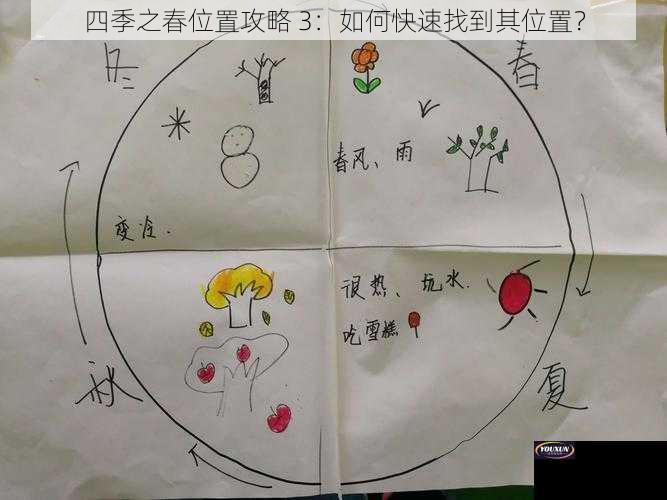 四季之春位置攻略 3：如何快速找到其位置？
冬
春
春风、雨
变冷.
很热、玩水.
吃雪糕
秋
夏
YOUXUN